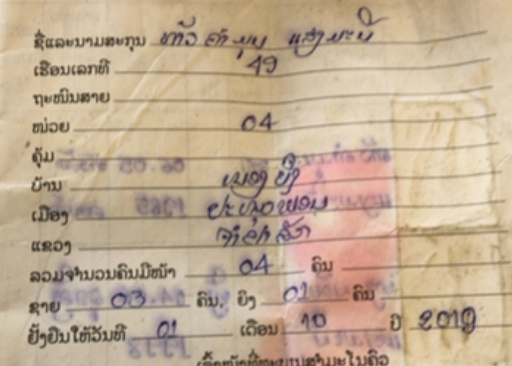 ຊື່ແລະນາມສະກຸນ ທ້າວ ຄໍາມຸນ ແສງມະນີ
ເຮືອນເລກທີ 49
ຖະໜົນສາຍ
ໜ່ວຍ 04
ຄຸ້ມ
ບ້ານ
ເມືອງ ປະທຸມພອນ
ແຂວງ ຈໍາປາສັກ
ລວມຈໍານວນຄົນມີໜ້າ 04 ຄົນ
ຊາຍ 03 ຄົນ, ຍິງ 01 ຄົນ
ຢັ້ງຢືນໃຫ້ວັນທີ 01 ເດືອນ 10 ປີ 2019